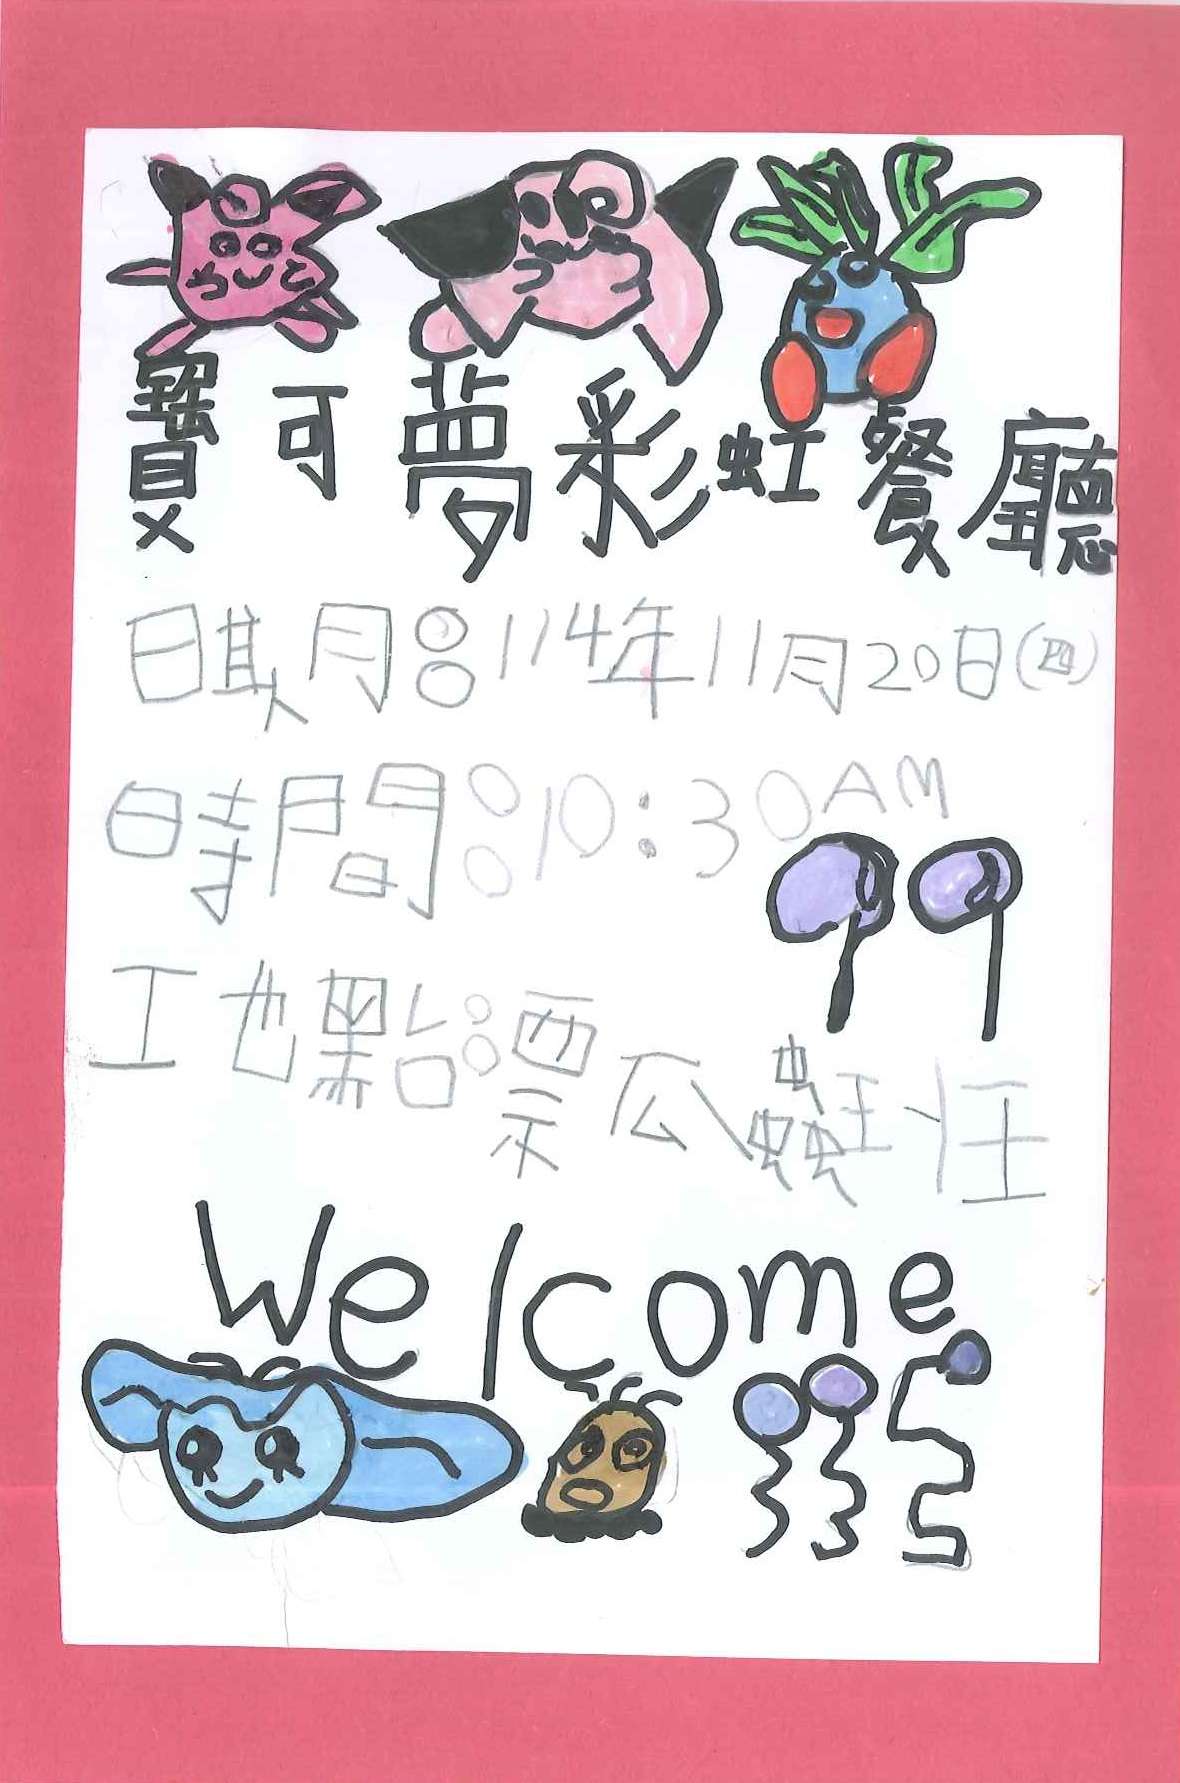 寶可夢彩虹餐廳
日期：114年11月20日(四)
時間：10:30AM
地點：票瓜
Welcome